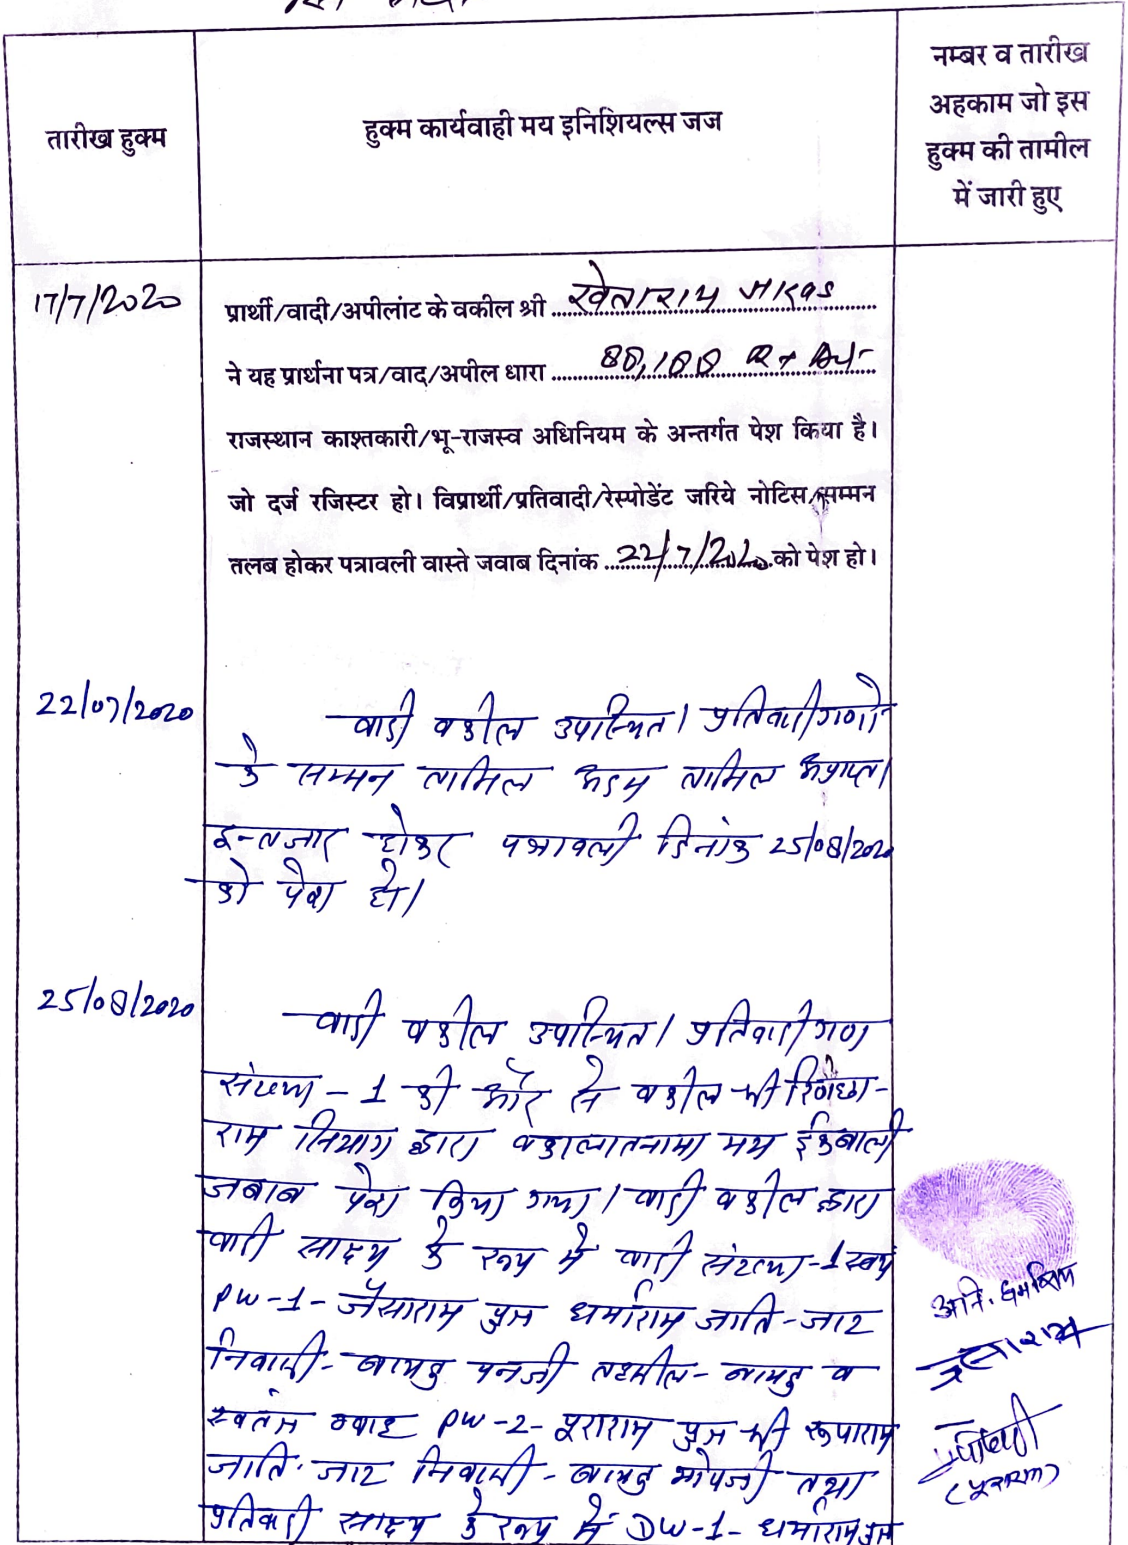 नम्बर व तारीख
अहकाम जो इस
हुक्म की तामील
में जारी हुए
तारीख हुक्म
हुक्म कार्यवाही मय इनिशियल्स जज
17/7/2020
प्रार्थी/वादी/अपीलांट के वकील श्री खेताराम
ने यह प्रार्थना पत्र/वाद/अपील धारा 88,188
राजस्थान काश्तकारी/भू-राजस्व अधिनियम के अन्तर्गत पेश किया है।
जो दर्ज रजिस्टर हो। विप्रार्थी/प्रतिवादी/रेस्पोडेंट जरिये नोटिस/सम्मन
तलब होकर पत्रावली वास्ते जवाब दिनांक 22/7/2020 को पेश हो।
22/07/2020
वादी वकील उपस्थित। प्रतिवादीगणो
के सम्मन तामिल अदम तामिल अप्राप्त।
इन्तजार होकर पत्रावली दिनांक 25/08/2020
को पेश हो।
25/08/2020
वादी वकील उपस्थित। प्रतिवादीगण
संख्या - 1 की ओर से वकील श्री
राम सियाग द्वारा वकालातनामा मय ईकबाली
जबाब पेश किया गया। वादी वकील द्वारा
वादी साक्ष्य के रूप मे वादी संख्या-1 स्वयं
PW-1- जैसाराम पुत्र धर्माराम जाति-जाट
निवासी- बायतु पनजी तहसील- बायतु व
स्वतंत्र गवाह PW-2- पूराराम पुत्र श्री रूपाराम
जाति- जाट निवासी - बायतु भोपजी तथा
प्रतिवादी साक्ष्य के रूप में DW-1- धर्माराम पुत्र
(पूराराम)